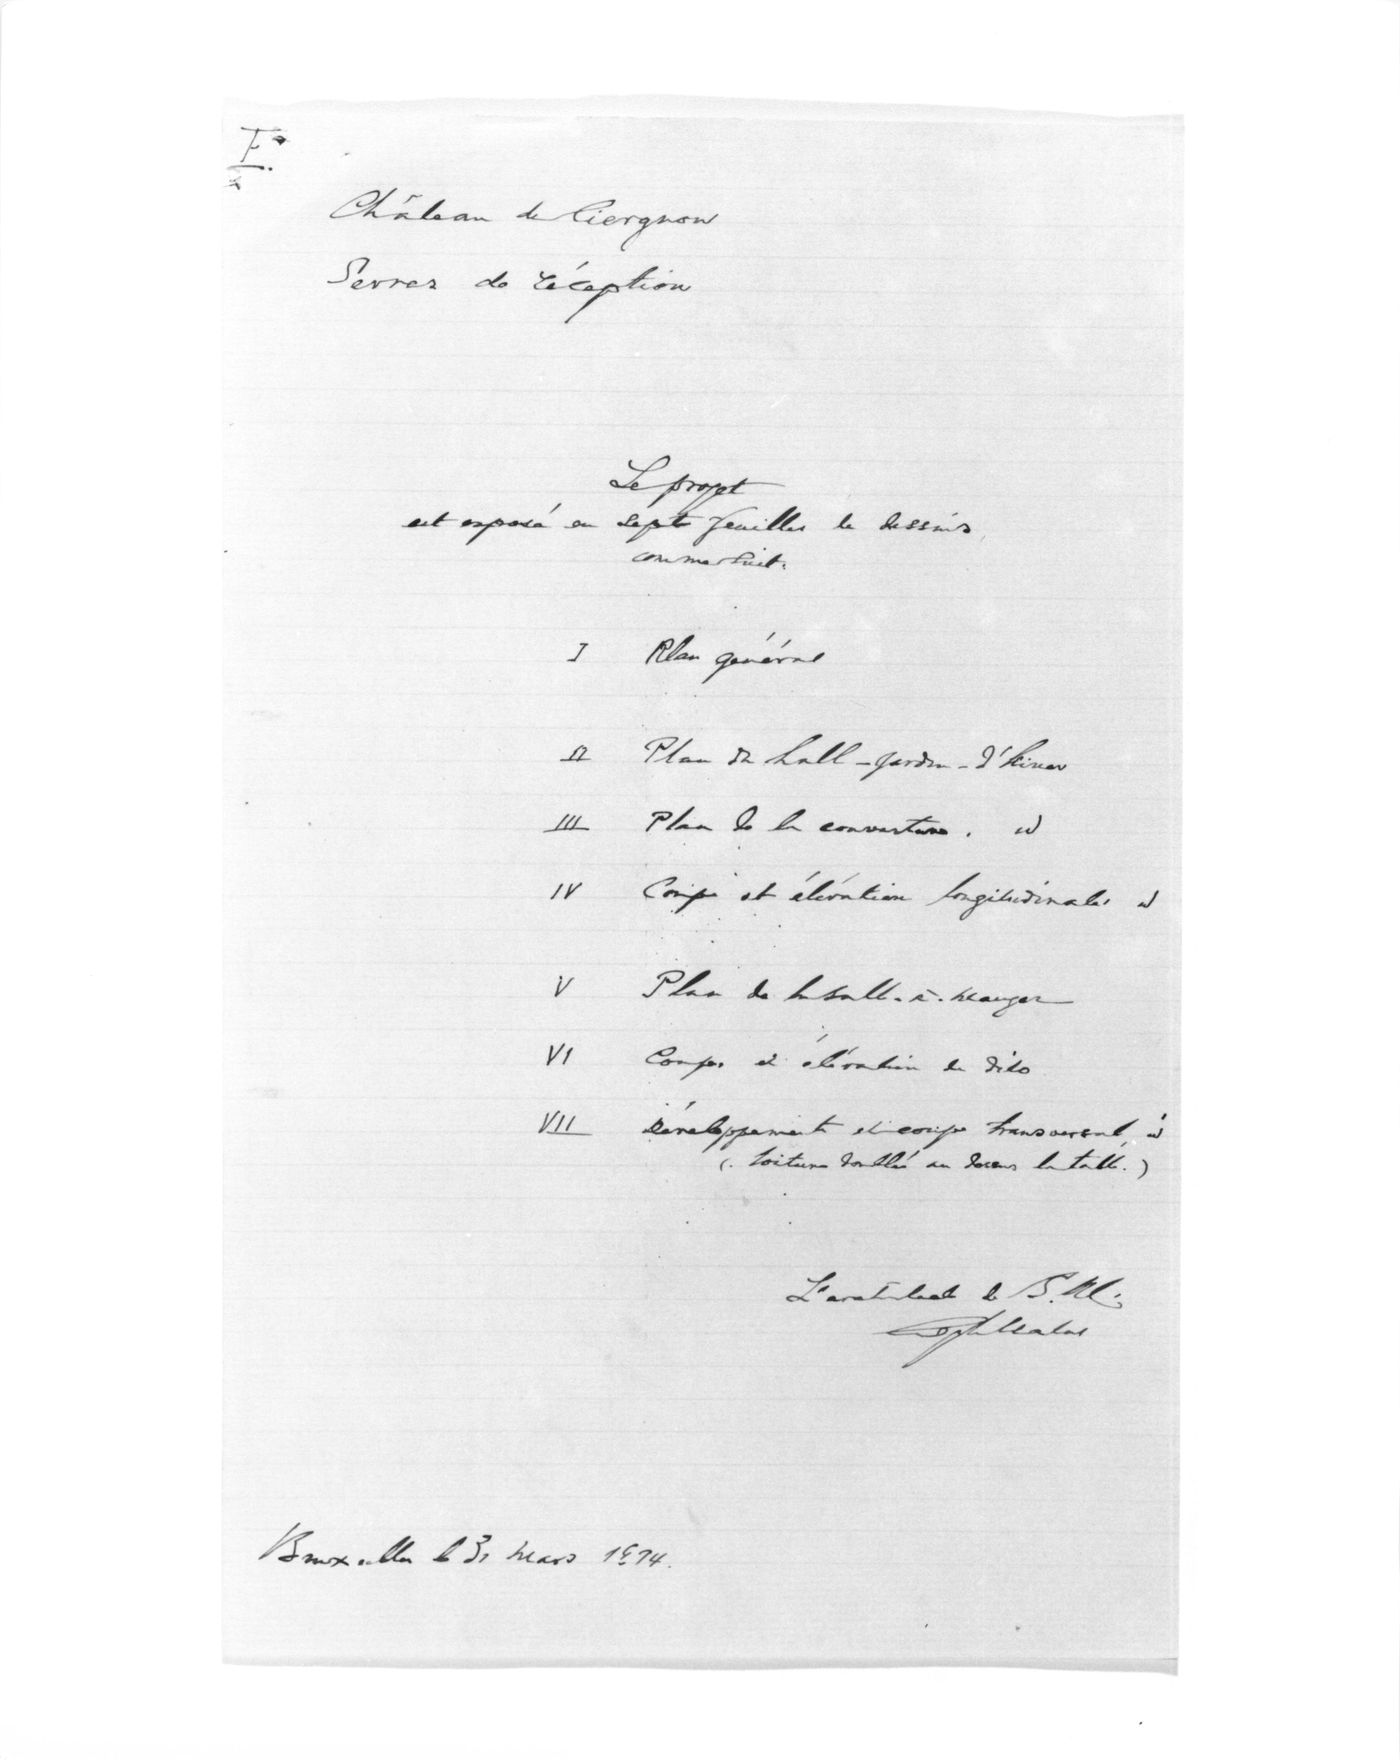 F°
Château de Ciergnon
Serres de réception
Le projet
est exposé en sept feuilles de dessins,
comme suit.
I Plan général
II Plan du hall-jardin-d'hiver
III Plan de la couverture. id
IV Coupe et élévation longitudinales id
V Plan de la salle-à-manger
VI Coupe et élévation de dito
VII Développement et coupe transversal, id
(. toiture doublée au dessus la table.)
L'architecte de S. M.
Bruxelles le 31 Mars 1874.